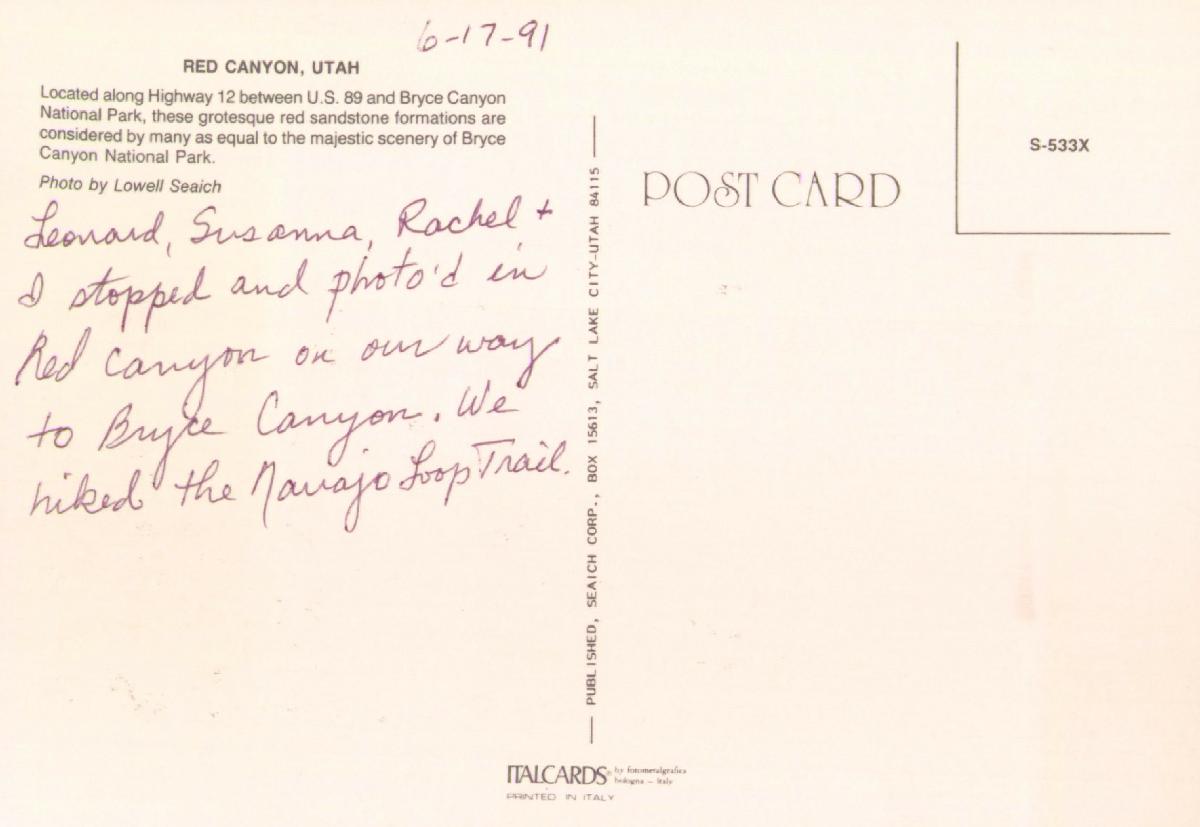 6-17-91
RED CANYON, UTAH
Located along Highway 12 between U.S. 89 and Bryce Canyon
National Park, these grotesque red sandstone formations are
considered by many as equal to the majestic scenery of Bryce
Canyon National Park.
Photo by Lowell Seaich
Leonard, Susanna, Rachel +
I stopped and photo'd in
Red Canyon on our way
to Bryce Canyon. We
hiked the Navajo Loop Trail.
PUBLISHED, SEAICH CORP., BOX 15613, SALT LAKE CITY-UTAH 84115
POST CARD
S-533X
ITALCARDS® by fotometalgrafica
bologna - italy
PRINTED IN ITALY